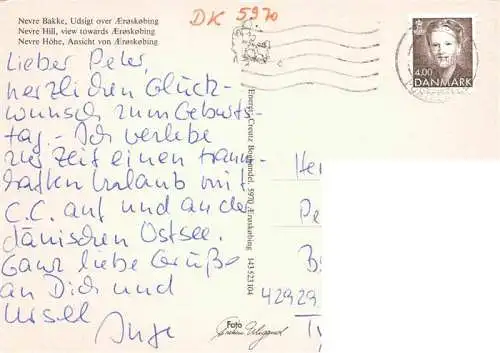 DK 5970
Nevre Bakke, Udsigt over Ærøskøbing
Nevre Hill, view towards Ærøskøbing
Nevre Höhe, Ansicht von Ærøskøbing
4.00
DANMARK
Lieber Peter,
herzlichen Glück-
wunsch zum Geburts-
tag. - Ich verlebe
zur Zeit einen traum-
haften Urlaub mit
C.C. auf und an der
dänischen Ostsee.
Ganz liebe Grüße
an Dich und
Ursel
Inge
Boghandel, 5970 Ærøskøbing 145 523 104
Foto
He
Pe
B
42929